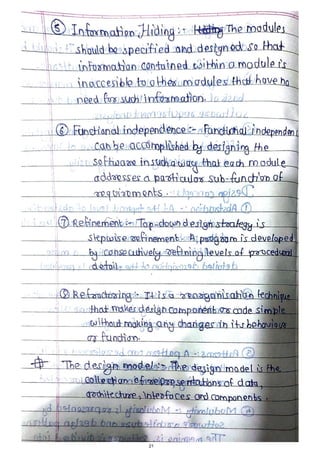 ⑤ Information Hiding :- The modules
should be specified and designed so that
information contained within a module is
inaccesible to other modules that have no
need for such information.
⑥ Functional independence :- Functional independen
can be accomplished by designing the
software in such a way that each module
addresses a particular sub-function of
requirements.
⑦ Refinement :- Top-down design strategy is
stepwise refinement. A program is developed
by consecutively refining levels of procedural
detail.
⑧ Refactoring :- It is a reorganisation technique
that makes design component or code simple
without making any changes in its behaviour
or function.
The design models :- The design model is the
collection of representations of data,
architecture, interfaces and components.
21